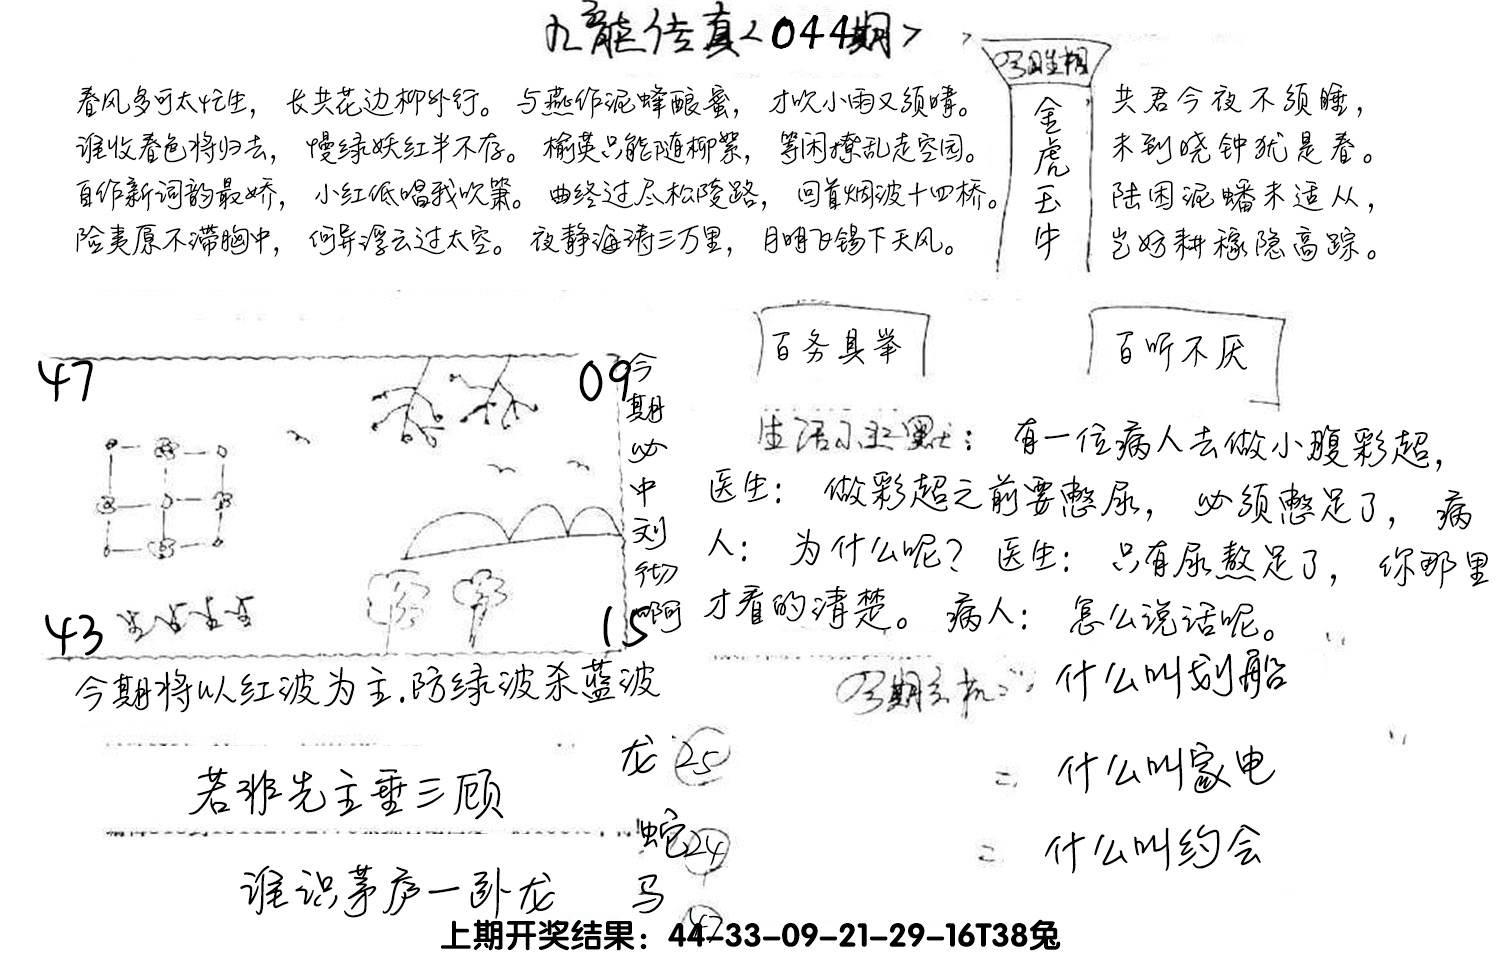 九龙传真<044期>
春风多可太忙生， 长共花边柳外行。 与燕作泥蜂酿蜜， 才吹小雨又须晴。
谁收春色将归去， 慢绿妖红半不存。 榆英只能随柳絮， 等闲撩乱走空园。
自作新词韵最娇， 小红低唱我吹箫。 曲终过尽松陵路， 回首烟波十四桥。
险夷原不滞胸中， 何异浮云过太空。 夜静海涛三万里， 月明飞锡下天风。
今期生相
金虎玉牛
共君今夜不须睡，
未到晓钟犹是春。
陆困泥蟠未适从，
岂妨耕稼隐高踪。
百务具举
百听不厌
47
09
43
15
今期必中刘彻啊
生活小幽默： 有一位病人去做小腹彩超，
医生： 做彩超之前要憋尿， 必须憋足了， 病
人： 为什么呢？ 医生： 只有尿熬足了， 你那里
才看的清楚。 病人： 怎么说话呢。
今期将以红波为主.防绿波杀蓝波
今期玄机： 什么叫划船
= 什么叫家电
= 什么叫约会
若非先主垂三顾
谁识茅庐一卧龙
龙 25
蛇 24
马 47
上期开奖结果：44-33-09-21-29-16T38兔